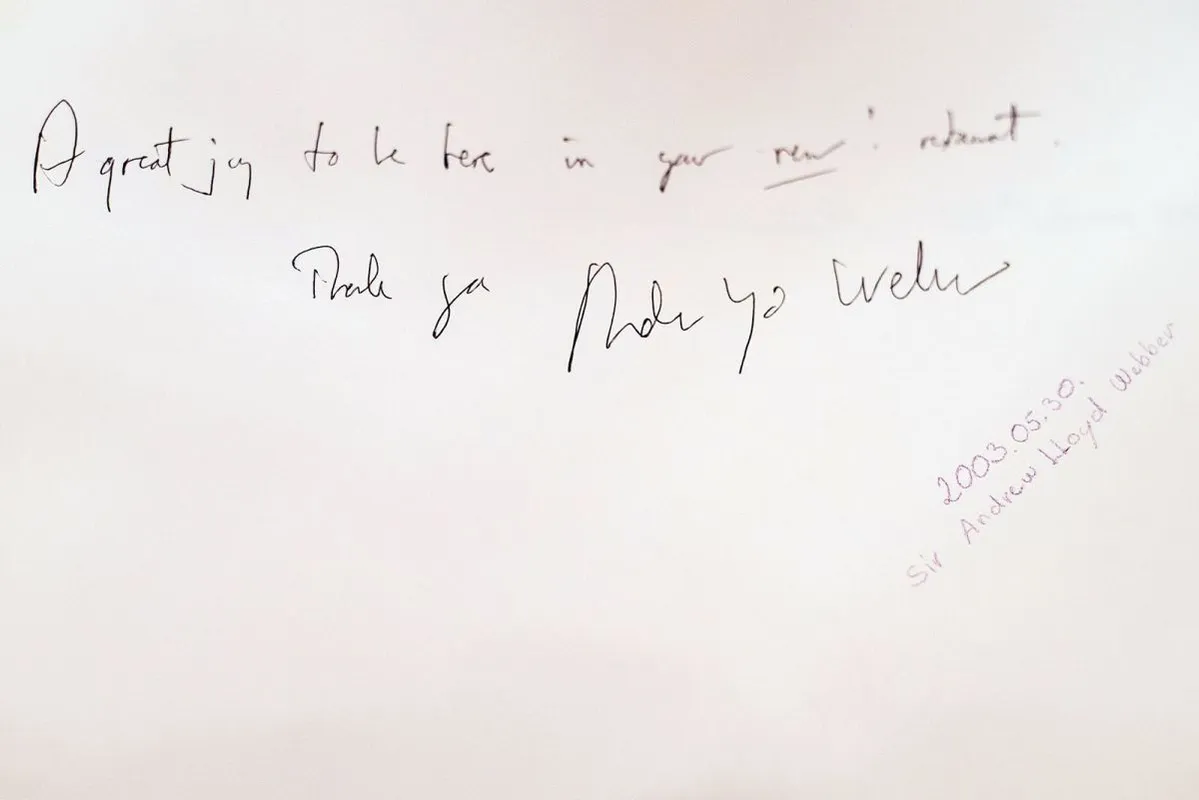 A great joy to be here in your new! restaurant.
Thank you Andrew Lloyd Webber
2003.05.30.
Sir Andrew Lloyd Webber